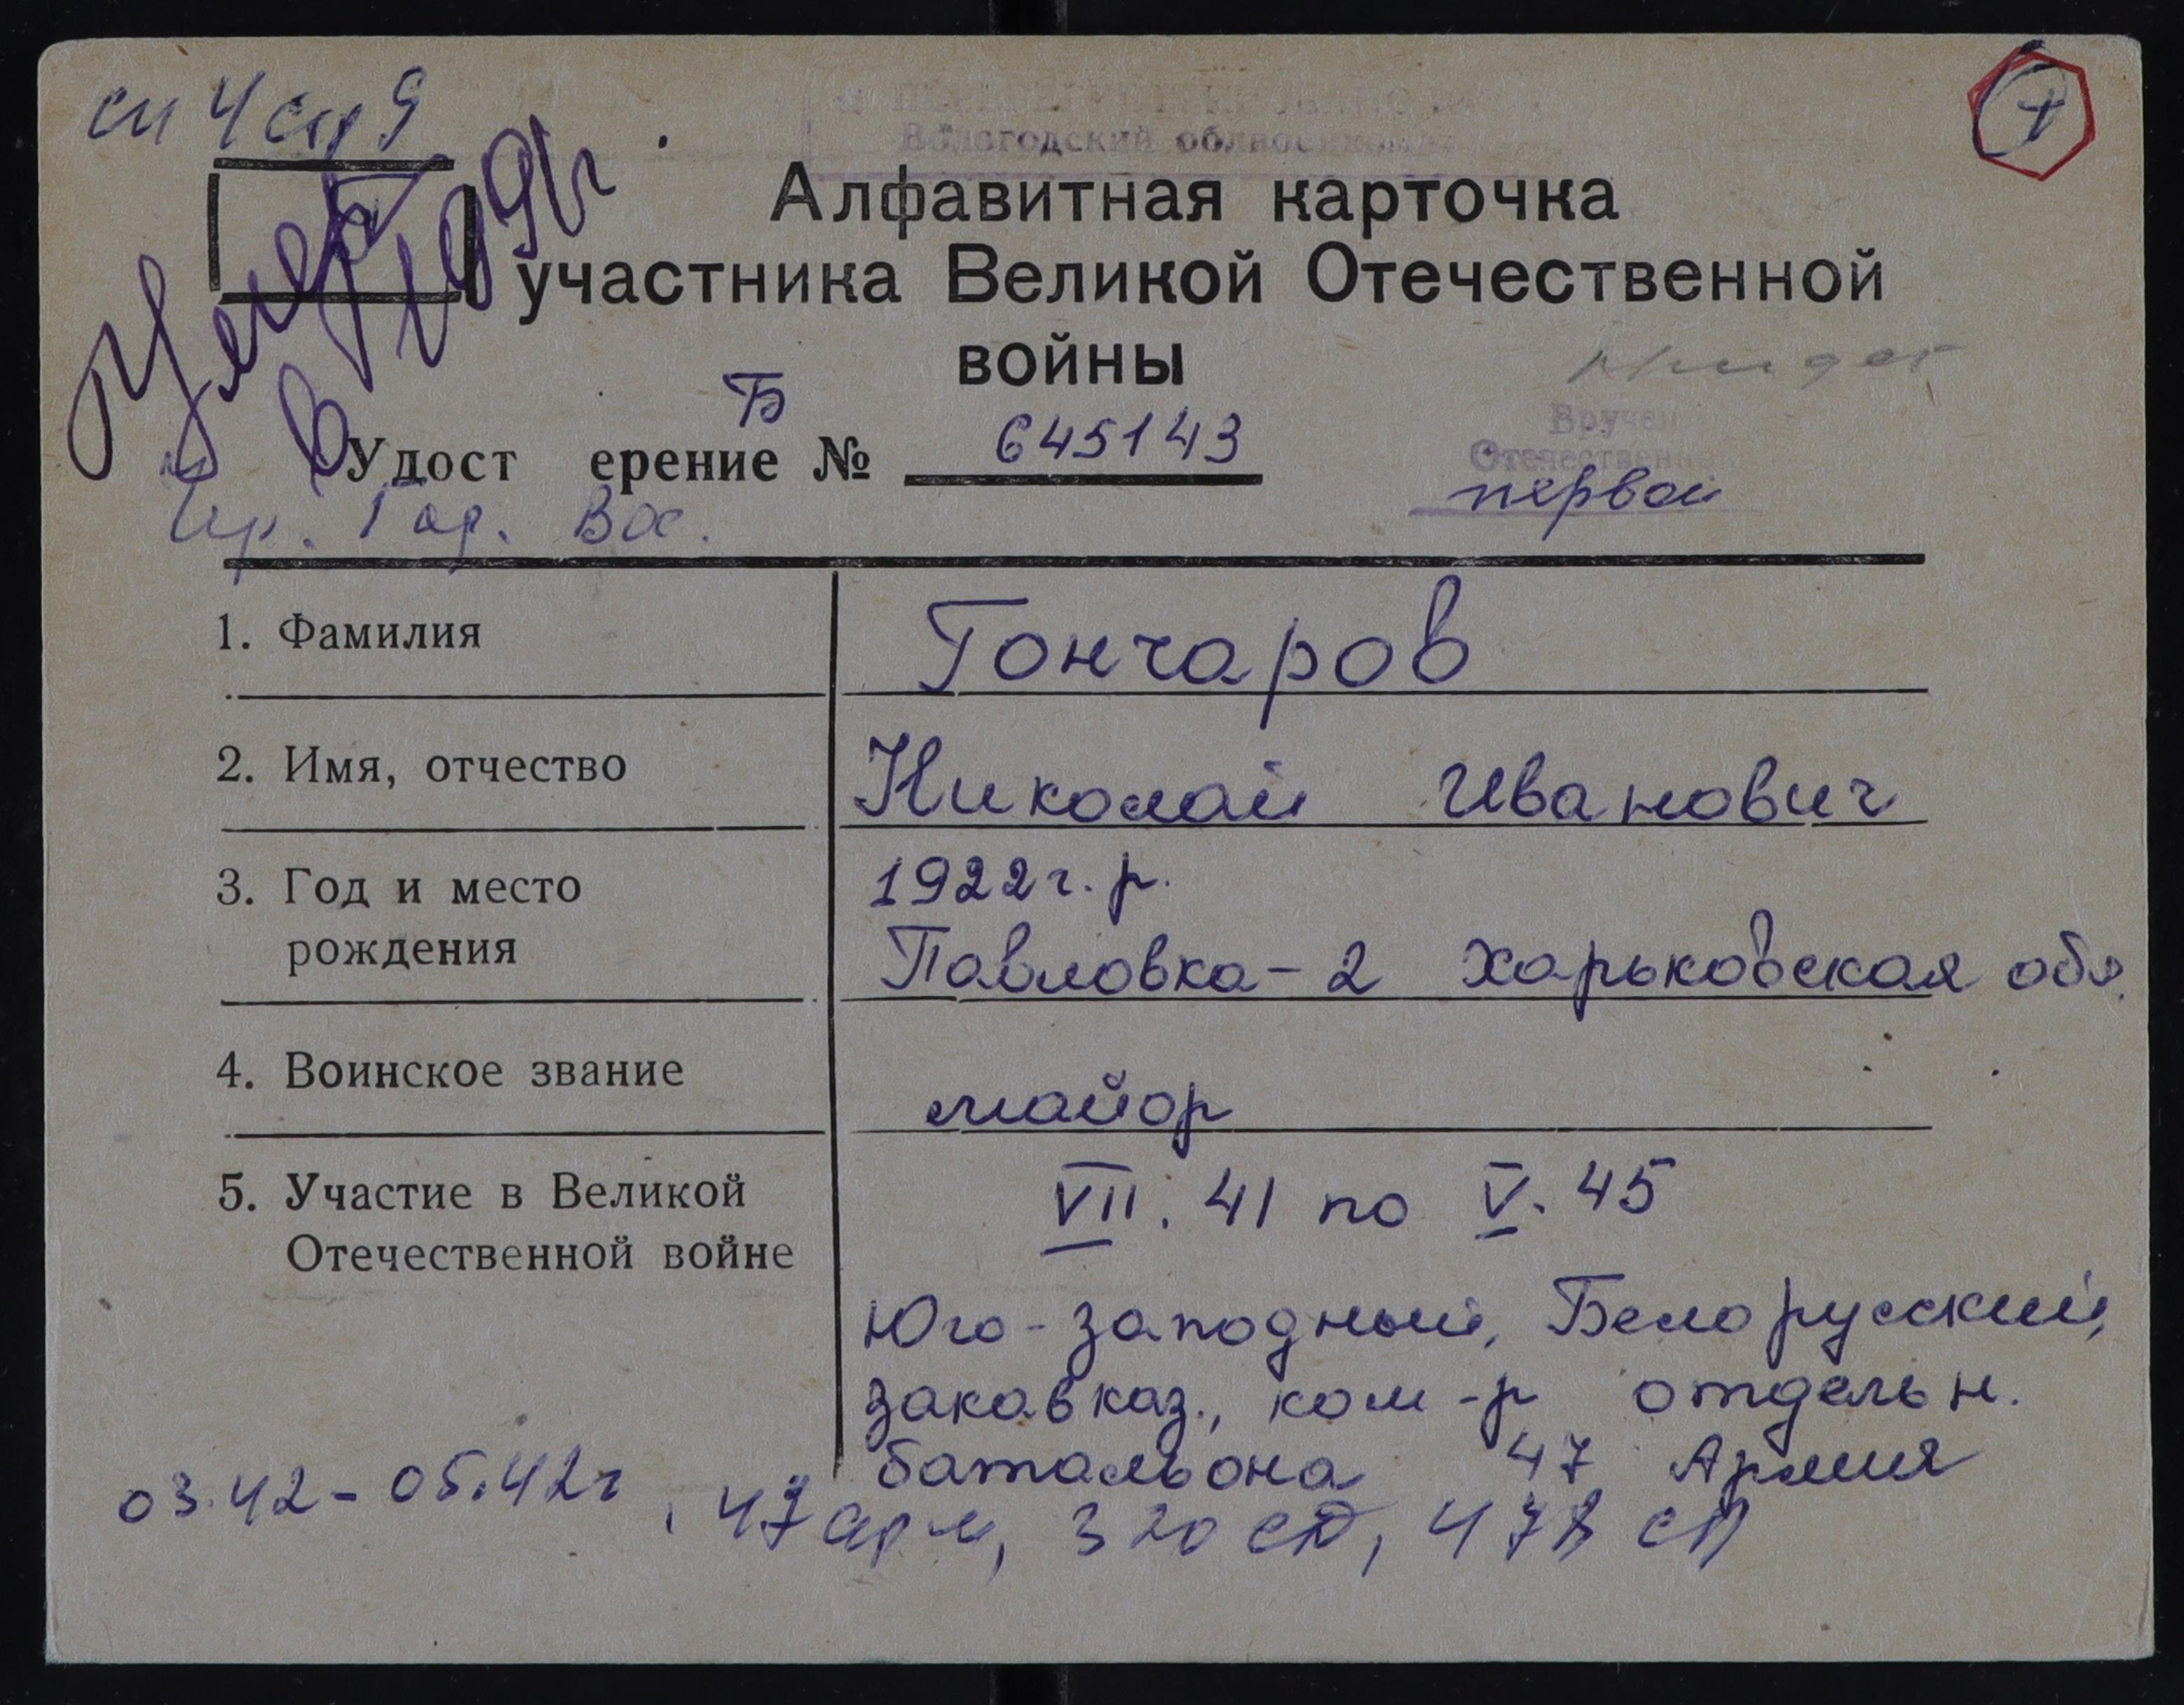 сп 4 стр 9
Умер
в 1991г.
Вологодский облвоенкомат
Алфавитная карточка
участника Великой Отечественной
войны
Вручен
Б
Удостоверение № 645143
Отечественно
первой
Пр. Гор. Вос.
1. Фамилия Гончаров
2. Имя, отчество Николай Иванович
3. Год и место 1922 г. р.
рождения Павловка-2 Харьковская обл.
4. Воинское звание майор
5. Участие в Великой VII. 41 по V. 45
Отечественной войне
Юго-западный, Белорусский,
закавказ., ком-р отдельн.
батальона 47 Армия
03.42 - 05.42г, 47 арм, 320 СД, 478 СП